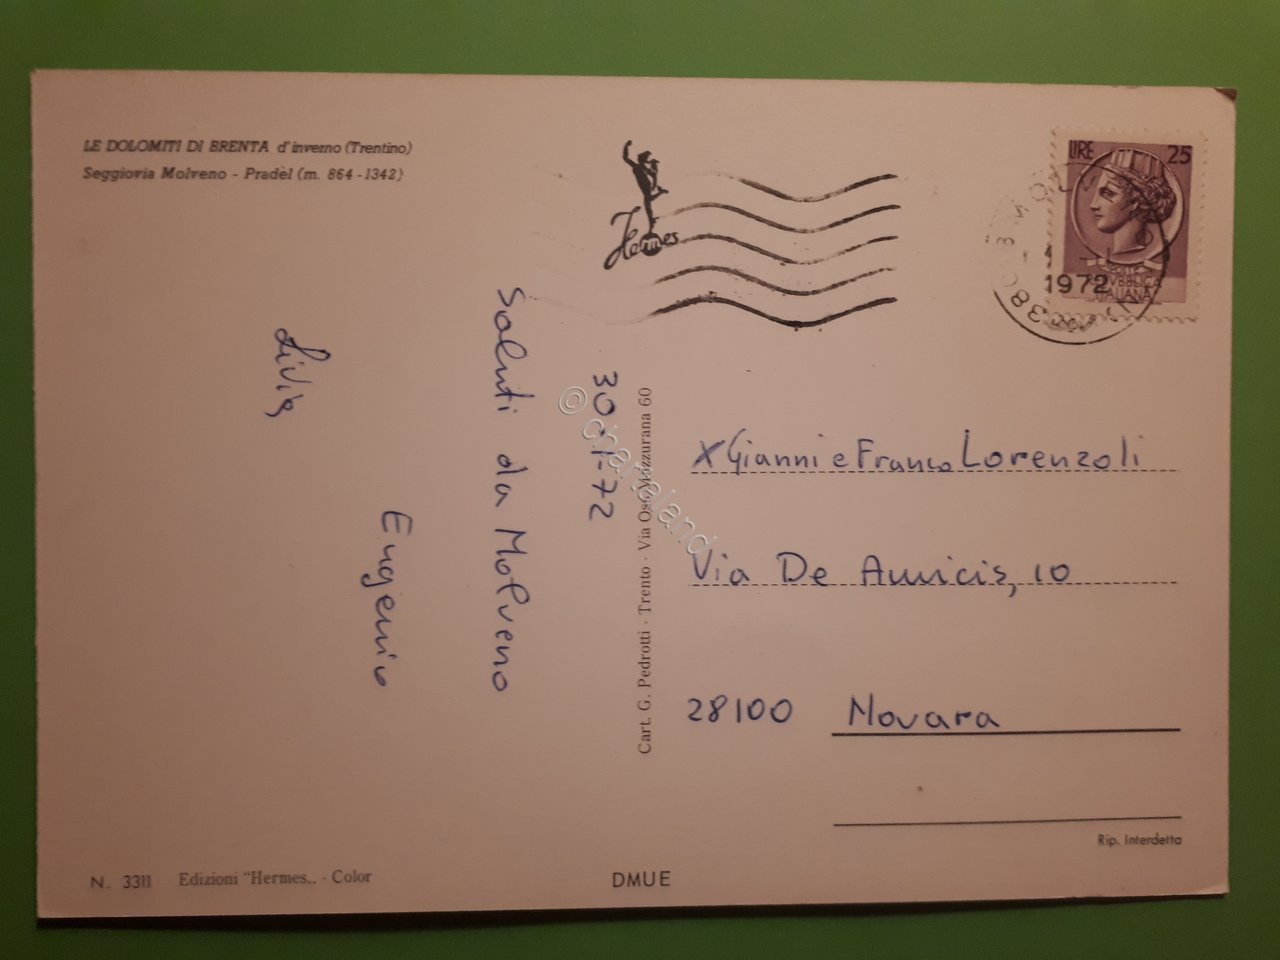 LE DOLOMITI DI BRENTA d'inverno (Trentino)
Seggiovia Molveno - Pradèl (m. 864 - 1342)
Hermes
LIRE 25
POSTE
REPVBBLICA
ITALIANA
1972
30-1-72
Saluti da Molveno
Eugenio
Livia
Cart. G. Pedrotti · Trento · Via Oss. Mazzurana 60
© cartaland
X Gianni e Franco Lorenzoli
Via De Amicis, 10
28100 Novara
Rip. Interdetta
N. 3311 Edizioni "Hermes„ - Color
DMUE